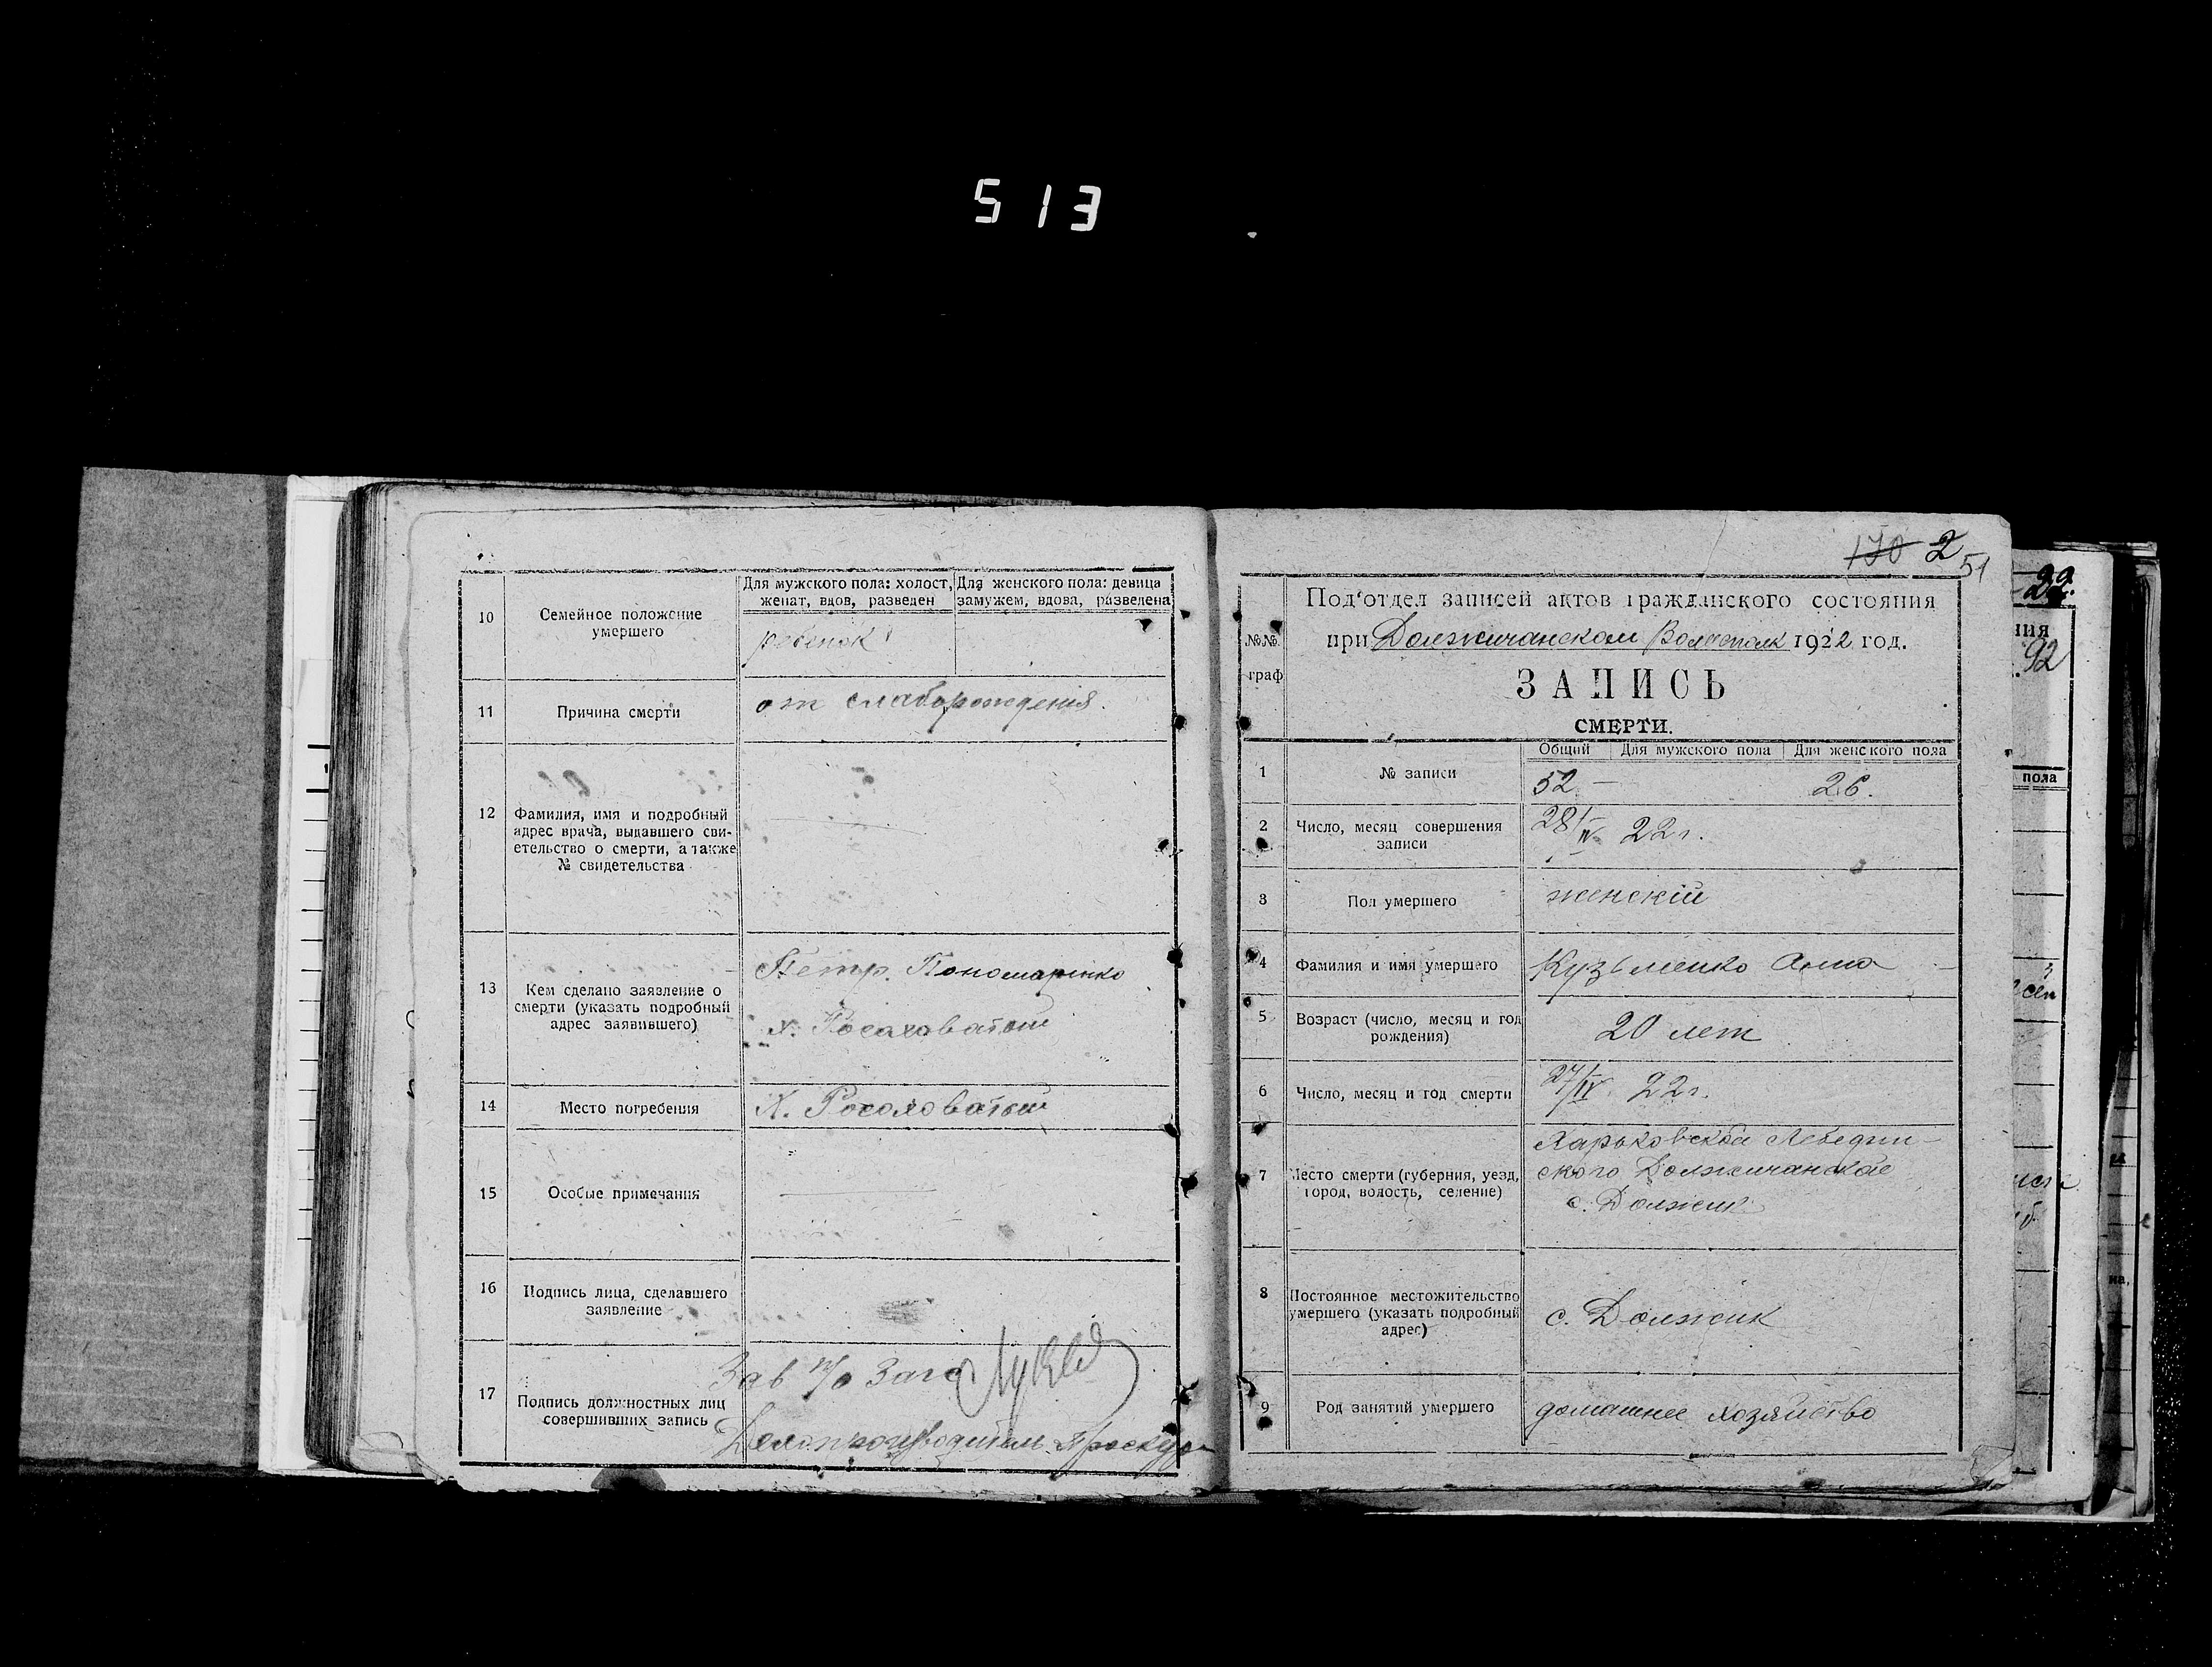 513
10
Семейное положение
умершего
Для мужского пола: холост,
женат, вдов, разведен
Для женского пола: девица
замужем, вдова, разведена
ребенок
11
Причина смерти
от слаборождения.
12
Фамилия, имя и подробный
адрес врача, выдавшего сви-
етельство о смерти, а также
№ свидетельства
13
Кем сделано заявление о
смерти (указать подробный
адрес заявившего)
Петр. Пономаренко
х.
14
Место погребения
Х.
15
Особые примечания
16
Подпись лица, сделавшего
заявление
17
Подпись должностных лиц
совершивших запись
Зав п/о Загс
Делопроизводитель
170 2
51
№№
граф
Под'отдел записей актов гражданского состояния
при Должичанском 1922 год.
ЗАПИСЬ
СМЕРТИ.
Общий
Для мужского пола
Для женского пола
1
№ записи
52 —
26.
2
Число, месяц совершения
записи
28/IV 22 г.
3
Пол умершего
женскій
4
Фамилия и имя умершего
Кузьменко Анна
5
Возраст (число, месяц и год
рождения)
20 лет
6
Число, месяц и год смерти
27/IV 22 г.
7
Место смерти (губерния, уезд,
город, волость, селение)
Харьковской Лебедин-
ского Должичанской
с. Должик
8
Постоянное местожительство
умершего (указать подробный
адрес)
с. Должик
9
Род занятий умершего
домашнее хозяйство
22.
ния
92
пола